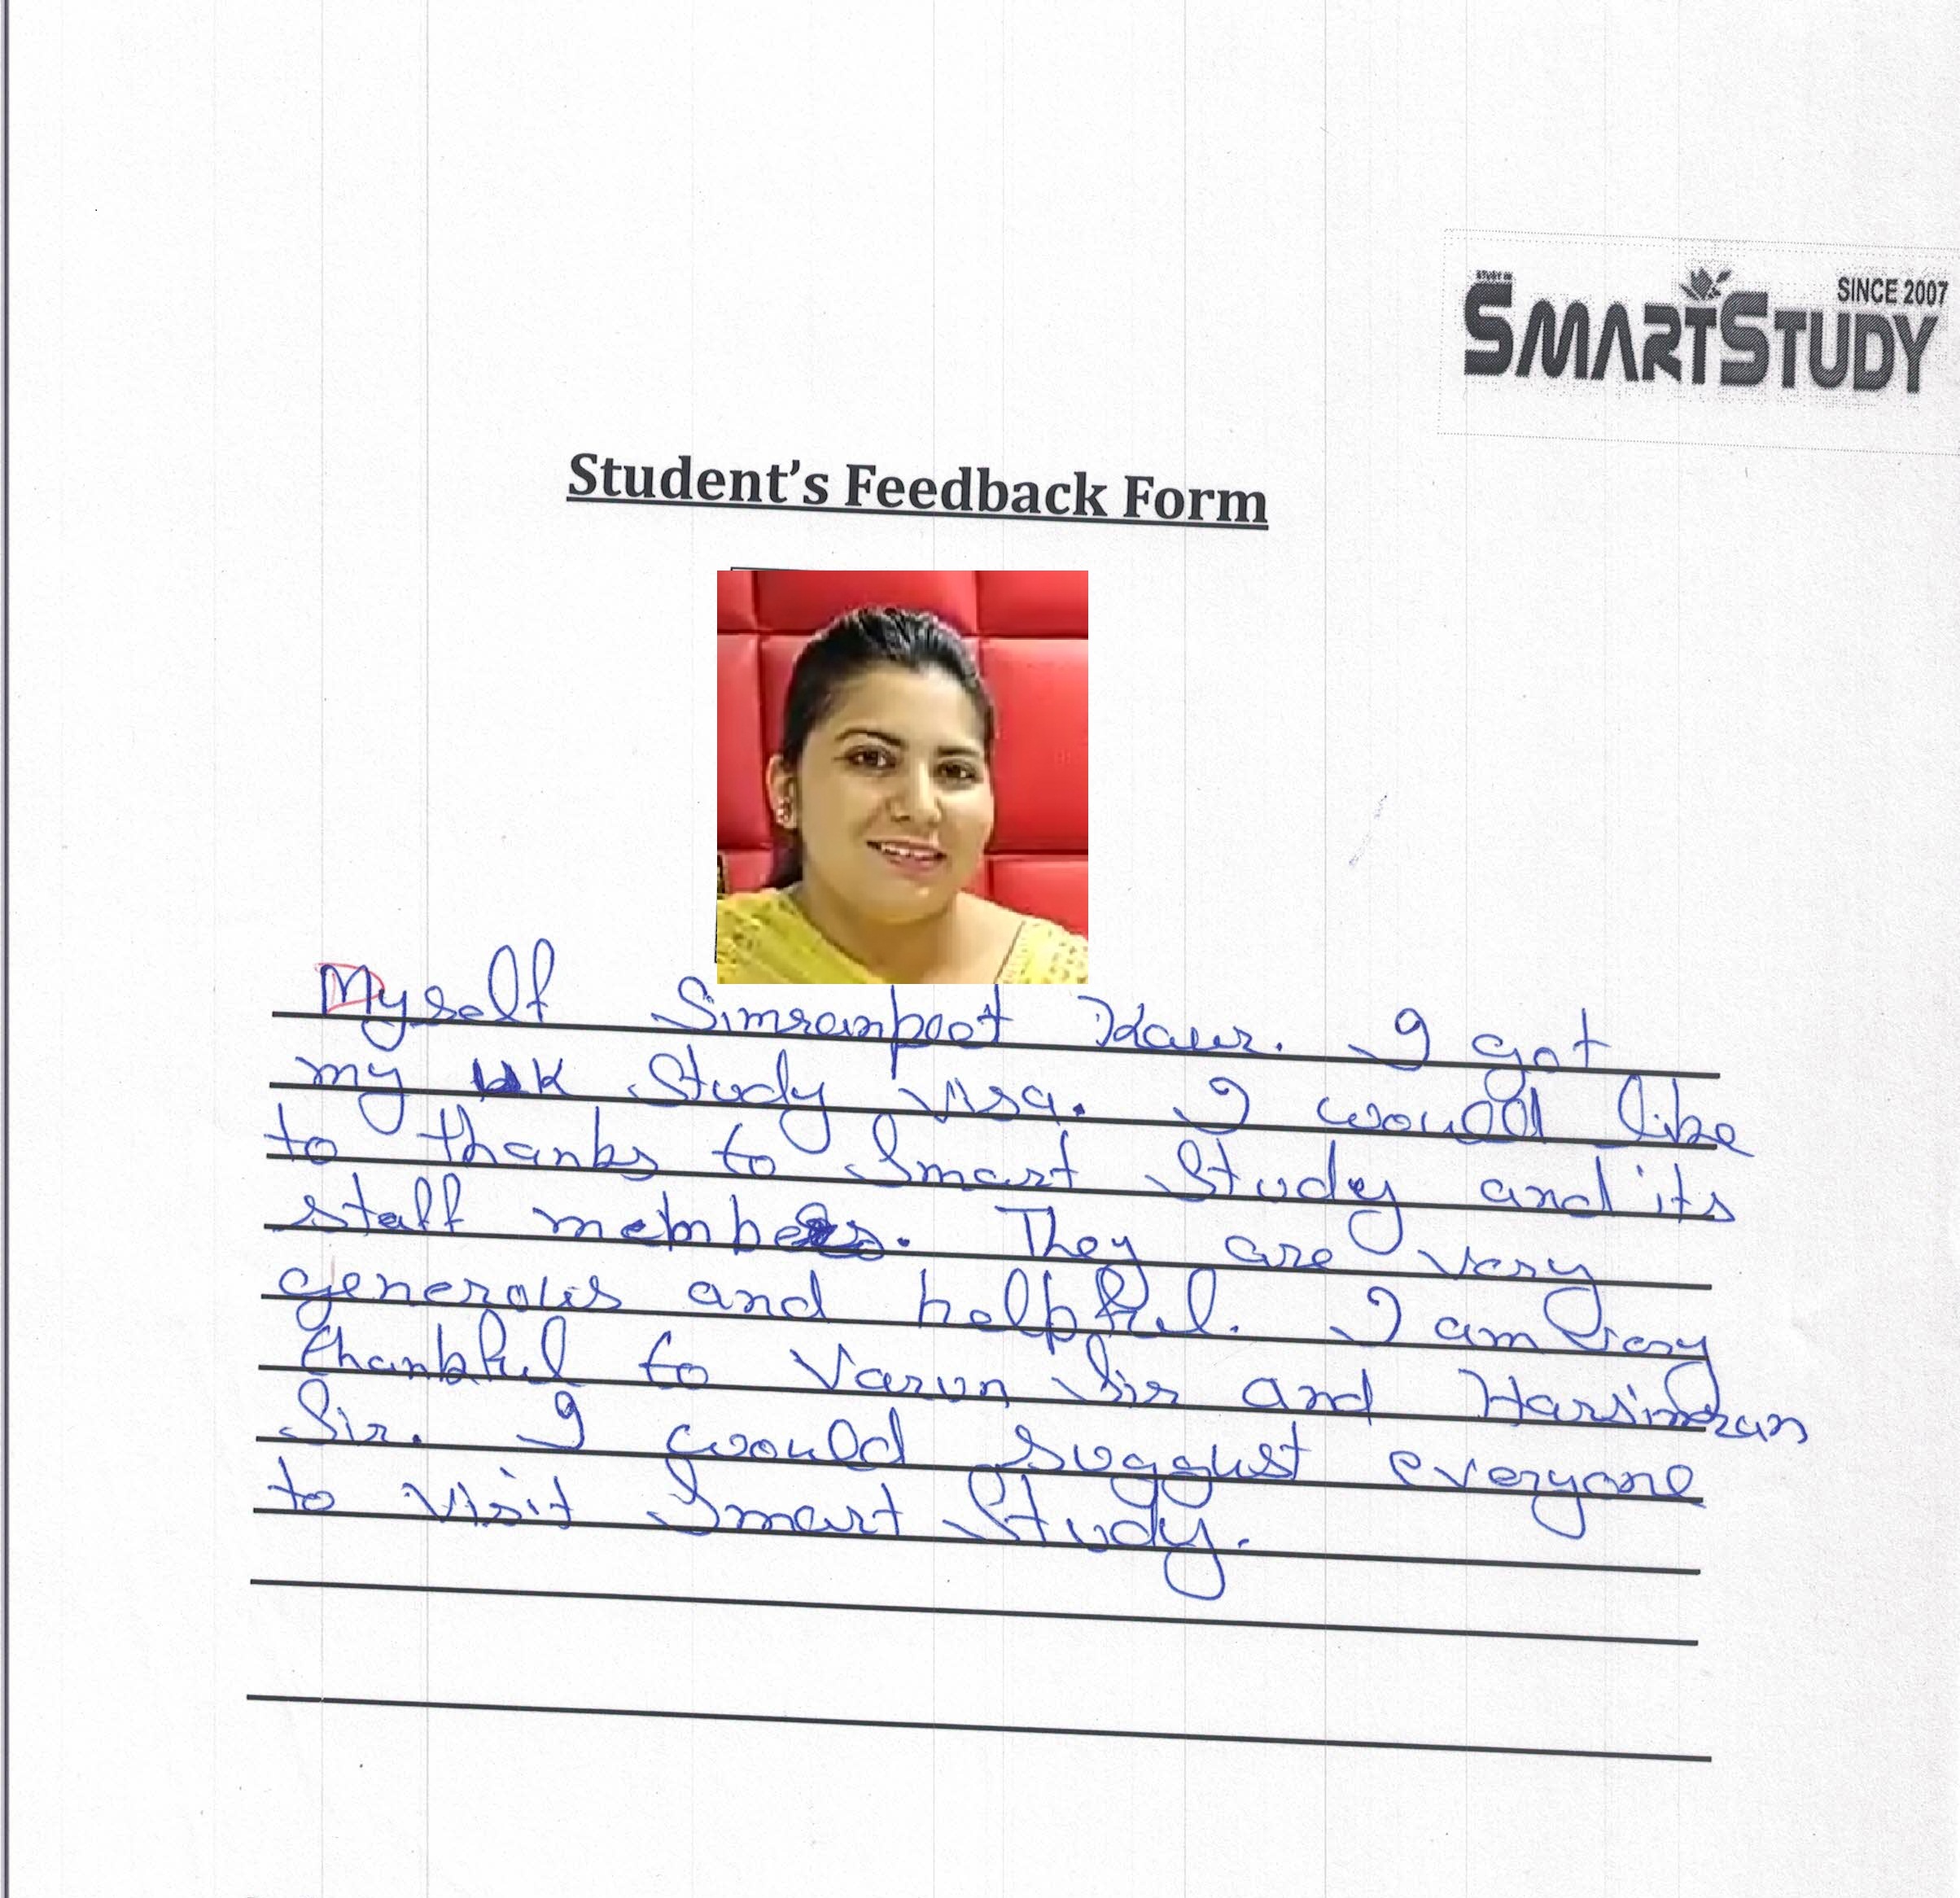 STUDY IN
SMARTSTUDY
SINCE 2007
Student's Feedback Form
Myself Simranpeet Kaur. I got
my UK Study visa. I would like
to thanks to Smart Study and its
staff members. They are very
generous and helpful. I am very
thankful to Varun Sir and Harsimran
Sir. I would suggust everyone
to visit Smart Study.